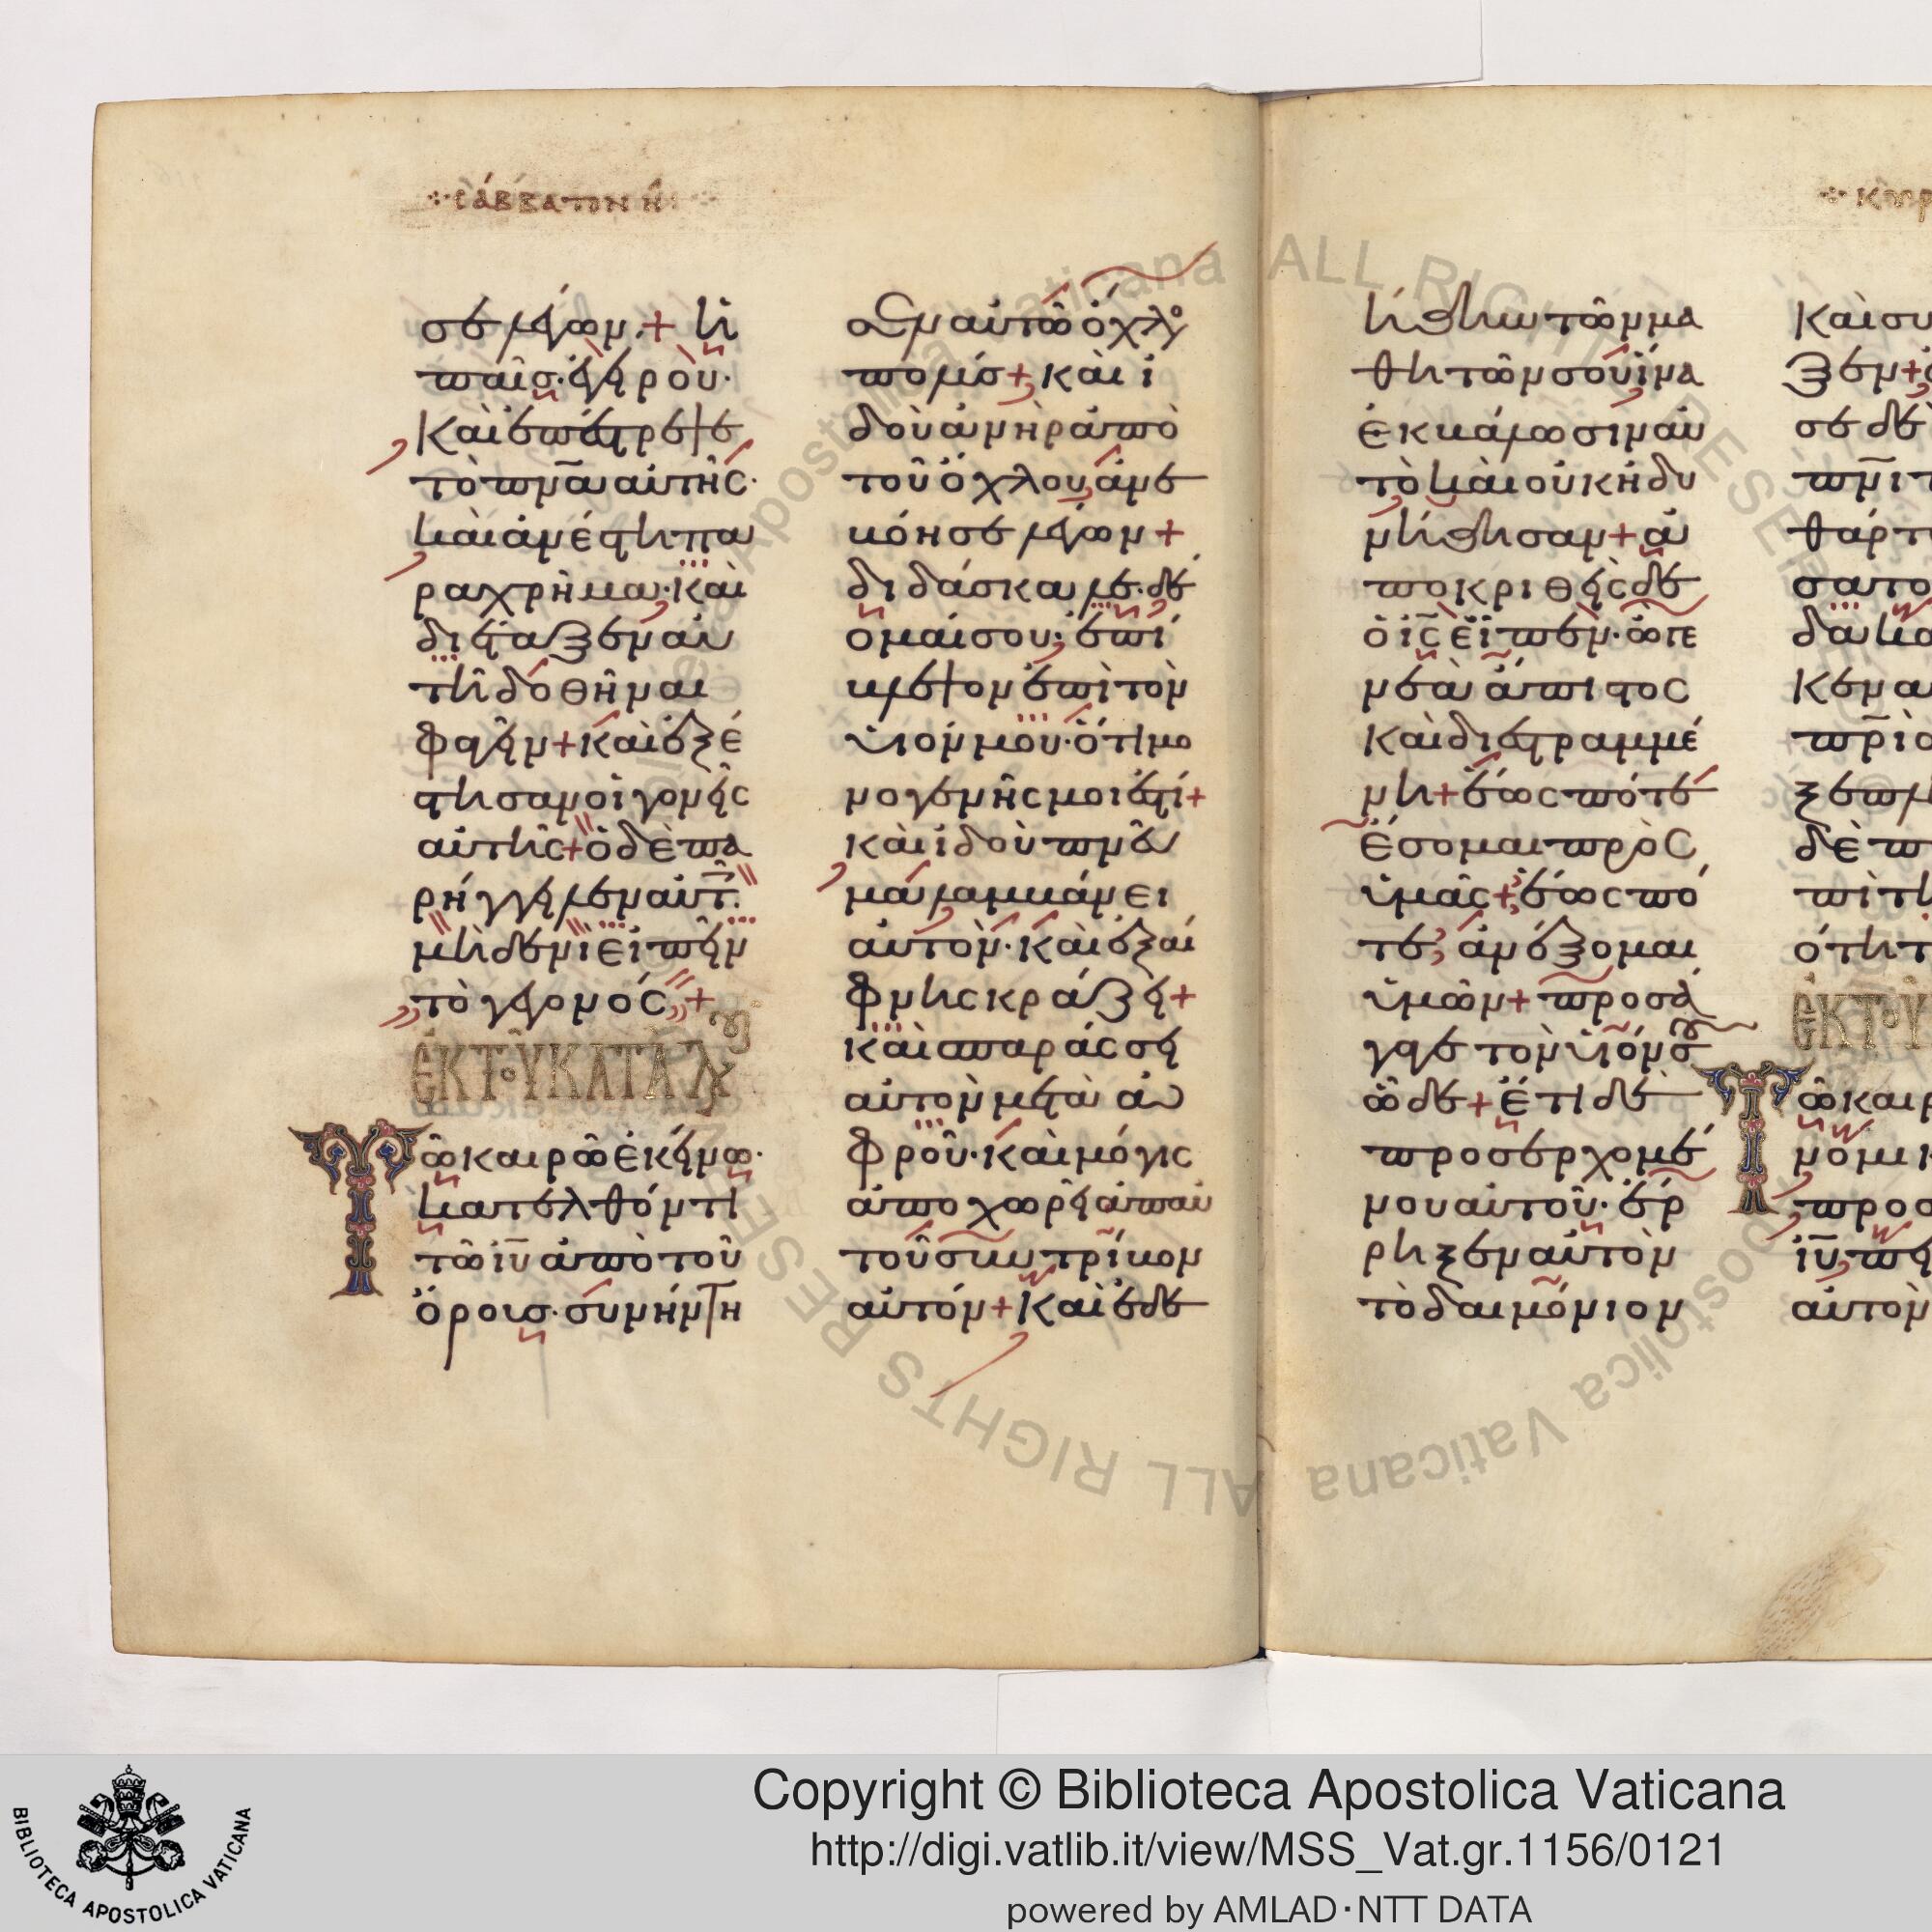 σάββατον η
σε λέγων + ἡ
παῖς· ἐγείρου·
Καὶ ἐπέστρεψε
τὸ πνα αὐτῆς·
καὶ ἀνέστη πα
ραχρῆμα· καὶ
διέταξεν αὐ
τῆ δοθῆναι
φαγεῖν + καὶ ἐξέ
στησαν οἱ γονεῖς
αὐτῆς + ὁ δὲ πα
ρήγγειλεν αὐτ.
μηδενὶ εἰπεῖν
τὸ γεγονός, +
ἐκ τοῦ κατὰ λου
Τῶ καιρῶ ἐκείνω·
κατελθόντι
τῶ ιυ ἀπὸ τοῦ
ὄρους· συνήντη
σεν αὐτῶ ὄχλο
πολύς + καὶ ἰ
δοὺ ἀνὴρ ἀπὸ
τοῦ ὄχλου, ἀνε
βόησε λέγων +
διδάσκαλε· δέ
ομαί σου· ἐπί
βλεψον ἐπὶ τὸν
υἱόν μου· ὅτι μο
νογενής μοι ἐστί +
καὶ ἰδοὺ πνα
μα λαμβάνει
αὐτὸν· καὶ ἐξαί
φνης κράζει +
καὶ σπαράσσει
αὐτὸν μετὰ ἀ
φροῦ· καὶ μόγις
ἀποχωρεῖ ἀπ αὐ
τοῦ συντρίβον
αὐτόν + Καὶ ἐδε
ήθην τῶν μα
θητῶν σου ἵνα
ἐκβάλωσιν αὐ
τὸ καὶ οὐκ ἠδυ
νήθησαν + ἀ
ποκριθεὶς δὲ
ὁ ις εἶπεν· ὦ γε
νεὰ ἄπιστος
καὶ διεστραμμέ
νη + ἕως πότε
ἔσομαι πρὸς
ὑμᾶς + ἕως πό
τε, ἀνέξομαι
ὑμῶν + προσά
γαγε τὸν υἱόν σ
ὧδε + ἔτι δὲ
προσερχομέ
νου αὐτοῦ· ἔρ
ρηξεν αὐτὸν
τὸ δαιμόνιον
κυρ
Καὶ συ
ζεν +
σε δὲ
πνι τ
θάρτ
σατο
δα κα
Κεν α
πρὶ ο
ξεπλ
δὲ π
πὶ τ
ότητ
ἐκ τοῦ
Τῶ καιρ
νόμικ
προσ
ιυ, πε
αὐτὸν
Apostolica Vaticana ALL RIGHTS RESERVED
Biblioteca Apostolica Vaticana ALL RIGHTS RESERVED
BIBLIOTECA APOSTOLICA VATICANA
Copyright © Biblioteca Apostolica Vaticana
http://digi.vatlib.it/view/MSS_Vat.gr.1156/0121
powered by AMLAD·NTT DATA